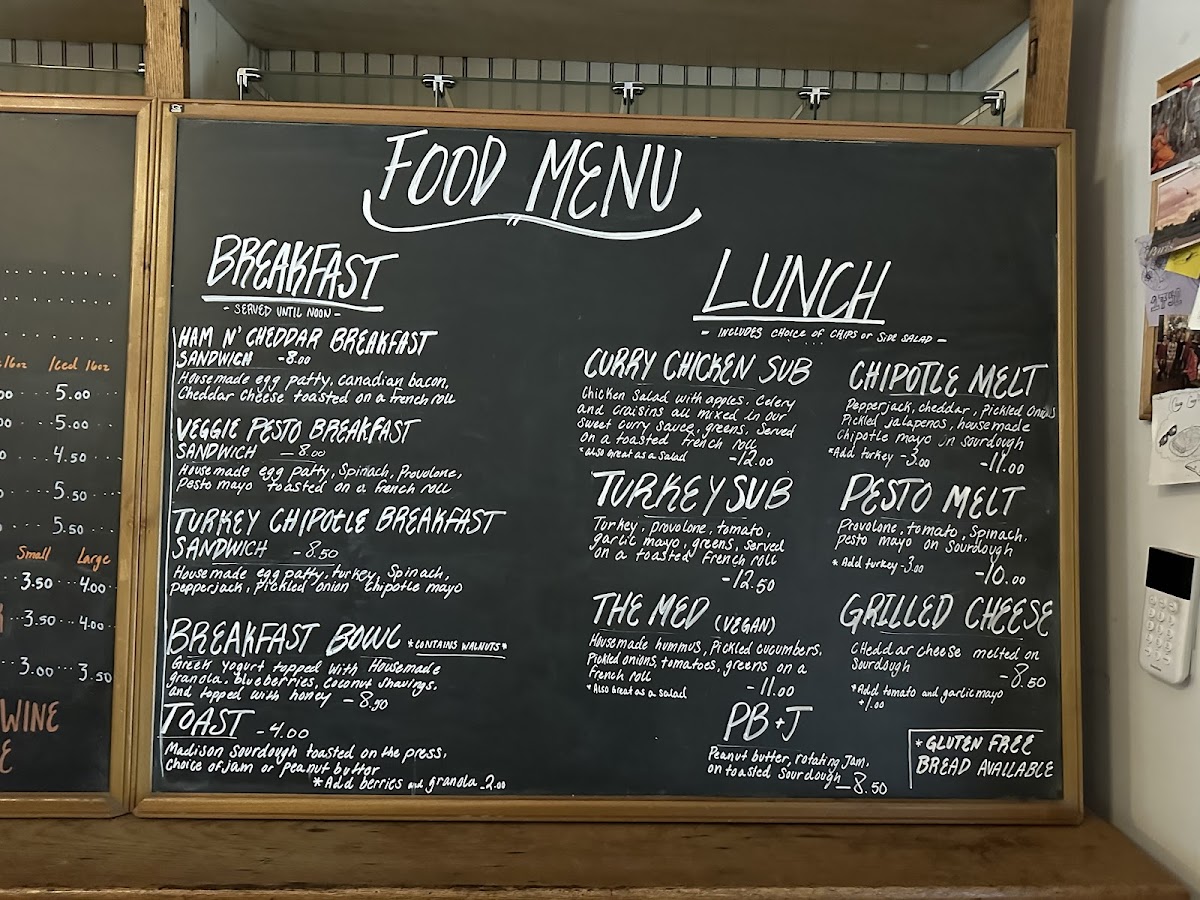 FOOD MENU
BREAKFAST
- SERVED UNTIL NOON -
HAM N' CHEDDAR BREAKFAST
SANDWICH -8.00
Housemade egg patty, canadian bacon,
Cheddar Cheese toasted on a french roll
VEGGIE PESTO BREAKFAST
SANDWICH - 8.00
Housemade egg patty, Spinach, Provolone,
Pesto mayo toasted on a french roll
TURKEY CHIPOTLE BREAKFAST
SANDWICH - 8.50
Housemade egg patty, turkey, Spinach,
pepperjack, pickled onion Chipotle mayo
BREAKFAST BOWL *CONTAINS WALNUTS*
Greek yogurt topped with Housemade
granola, blueberries, Coconut shavings,
and topped with honey - 8.50
TOAST - 4.00
Madison Sourdough toasted on the press,
choice of jam or peanut butter
*Add berries and granola -2.00
LUNCH
- INCLUDES CHOICE OF CHIPS OR SIDE SALAD -
CURRY CHICKEN SUB
Chicken Salad with apples, Celery
and craisins all mixed in our
sweet curry sauce, greens, Served
on a toasted french roll
*also Great as a Salad -12.00
TURKEY SUB
Turkey, provolone, tomato,
garlic mayo, greens, Served
on a toasted French roll
-12.50
THE MED (VEGAN)
Housemade hummus, Pickled cucumbers,
Pickled onions, tomatoes, greens on a
french roll
*Also Great as a Salad -11.00
PB + J
Peanut butter, rotating Jam,
on toasted Sourdough - 8.50
CHIPOTLE MELT
Pepperjack, cheddar, Pickled Onions
Pickled jalapenos, housemade
Chipotle mayo on sourdough
*Add turkey -3.00 -11.00
PESTO MELT
Provolone, tomato, Spinach,
pesto mayo on Sourdough
* Add turkey -3.00 -10.00
GRILLED CHEESE
Cheddar cheese melted on
Sourdough -8.50
*Add tomato and garlic mayo
+1.00
* GLUTEN FREE
BREAD AVAILABLE
16oz Iced 16oz
5.00
5.00
4.50
5.50
5.50
Small Large
3.50 4.00
3.50 4.00
3.00 3.50
WINE